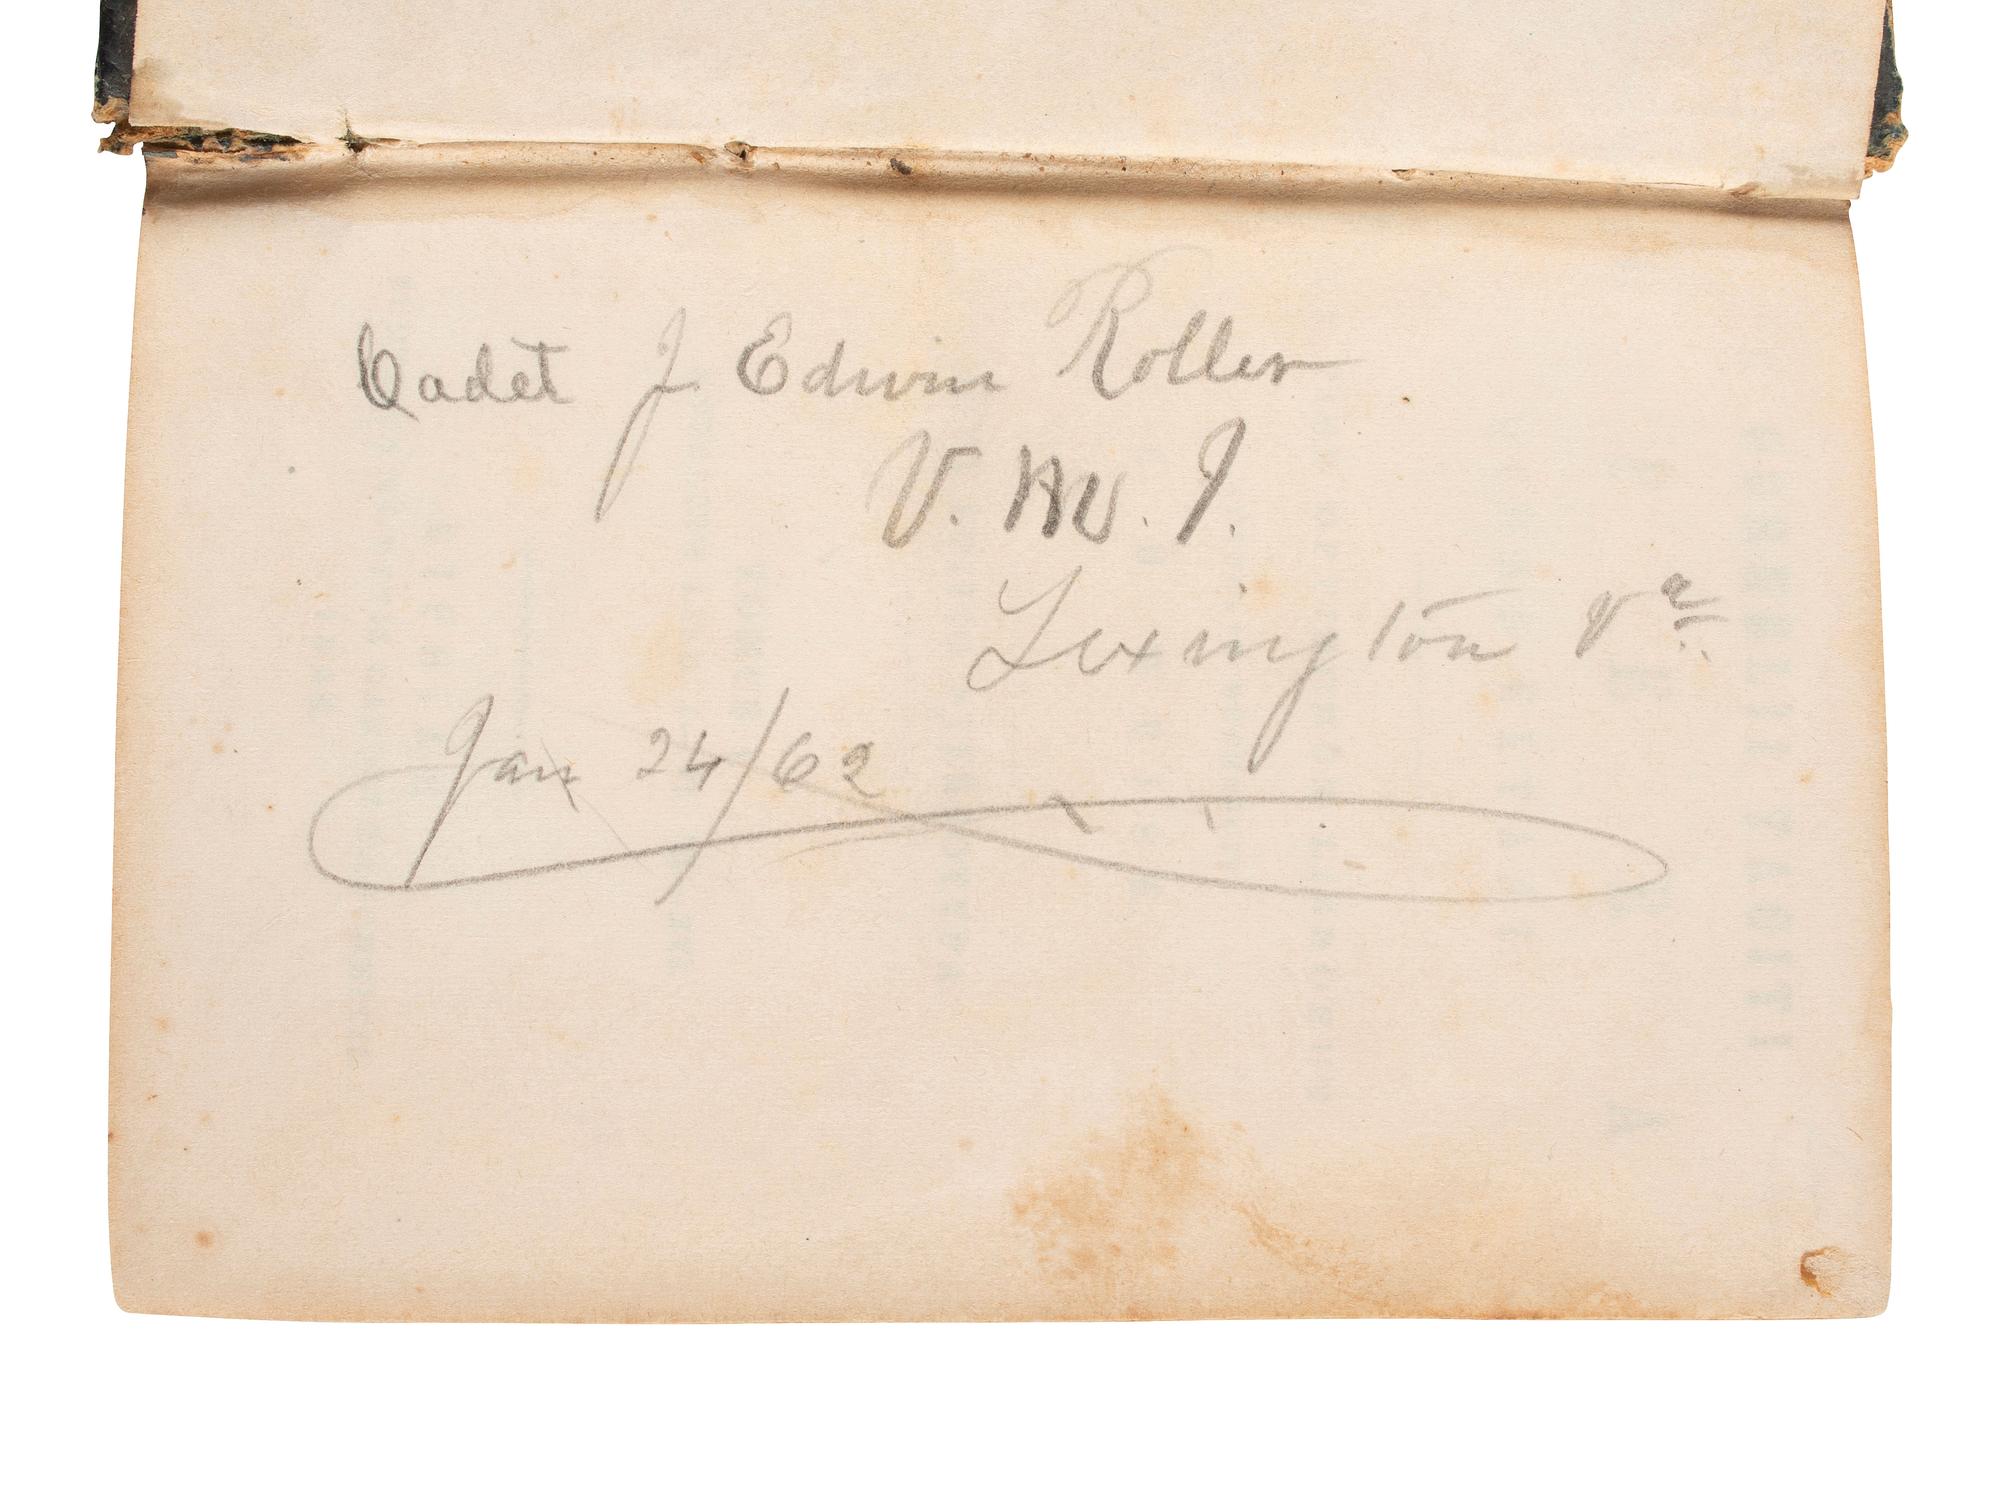 Cadet J Edwin Roller
V. M. I.
Lexington Va.
Jan 24/62